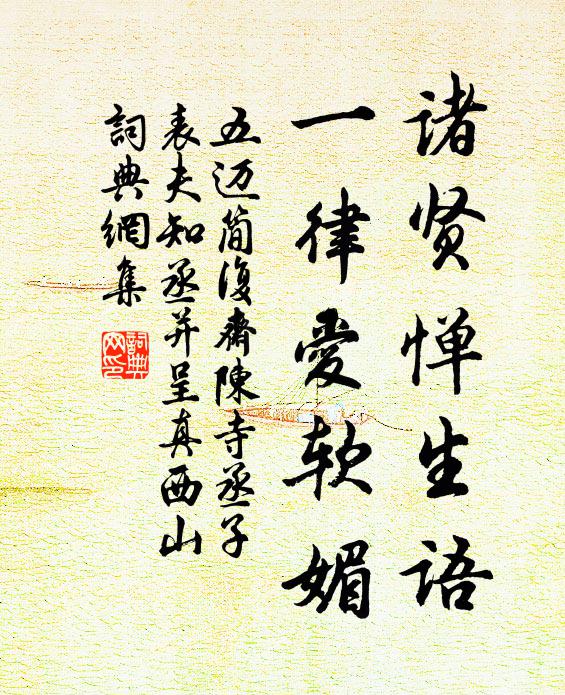 诸贤惮生语
一律爱软媚
五迈简復齋陳寺丞子
表夫知丞并呈真西山
詞典網集
詞典
网印